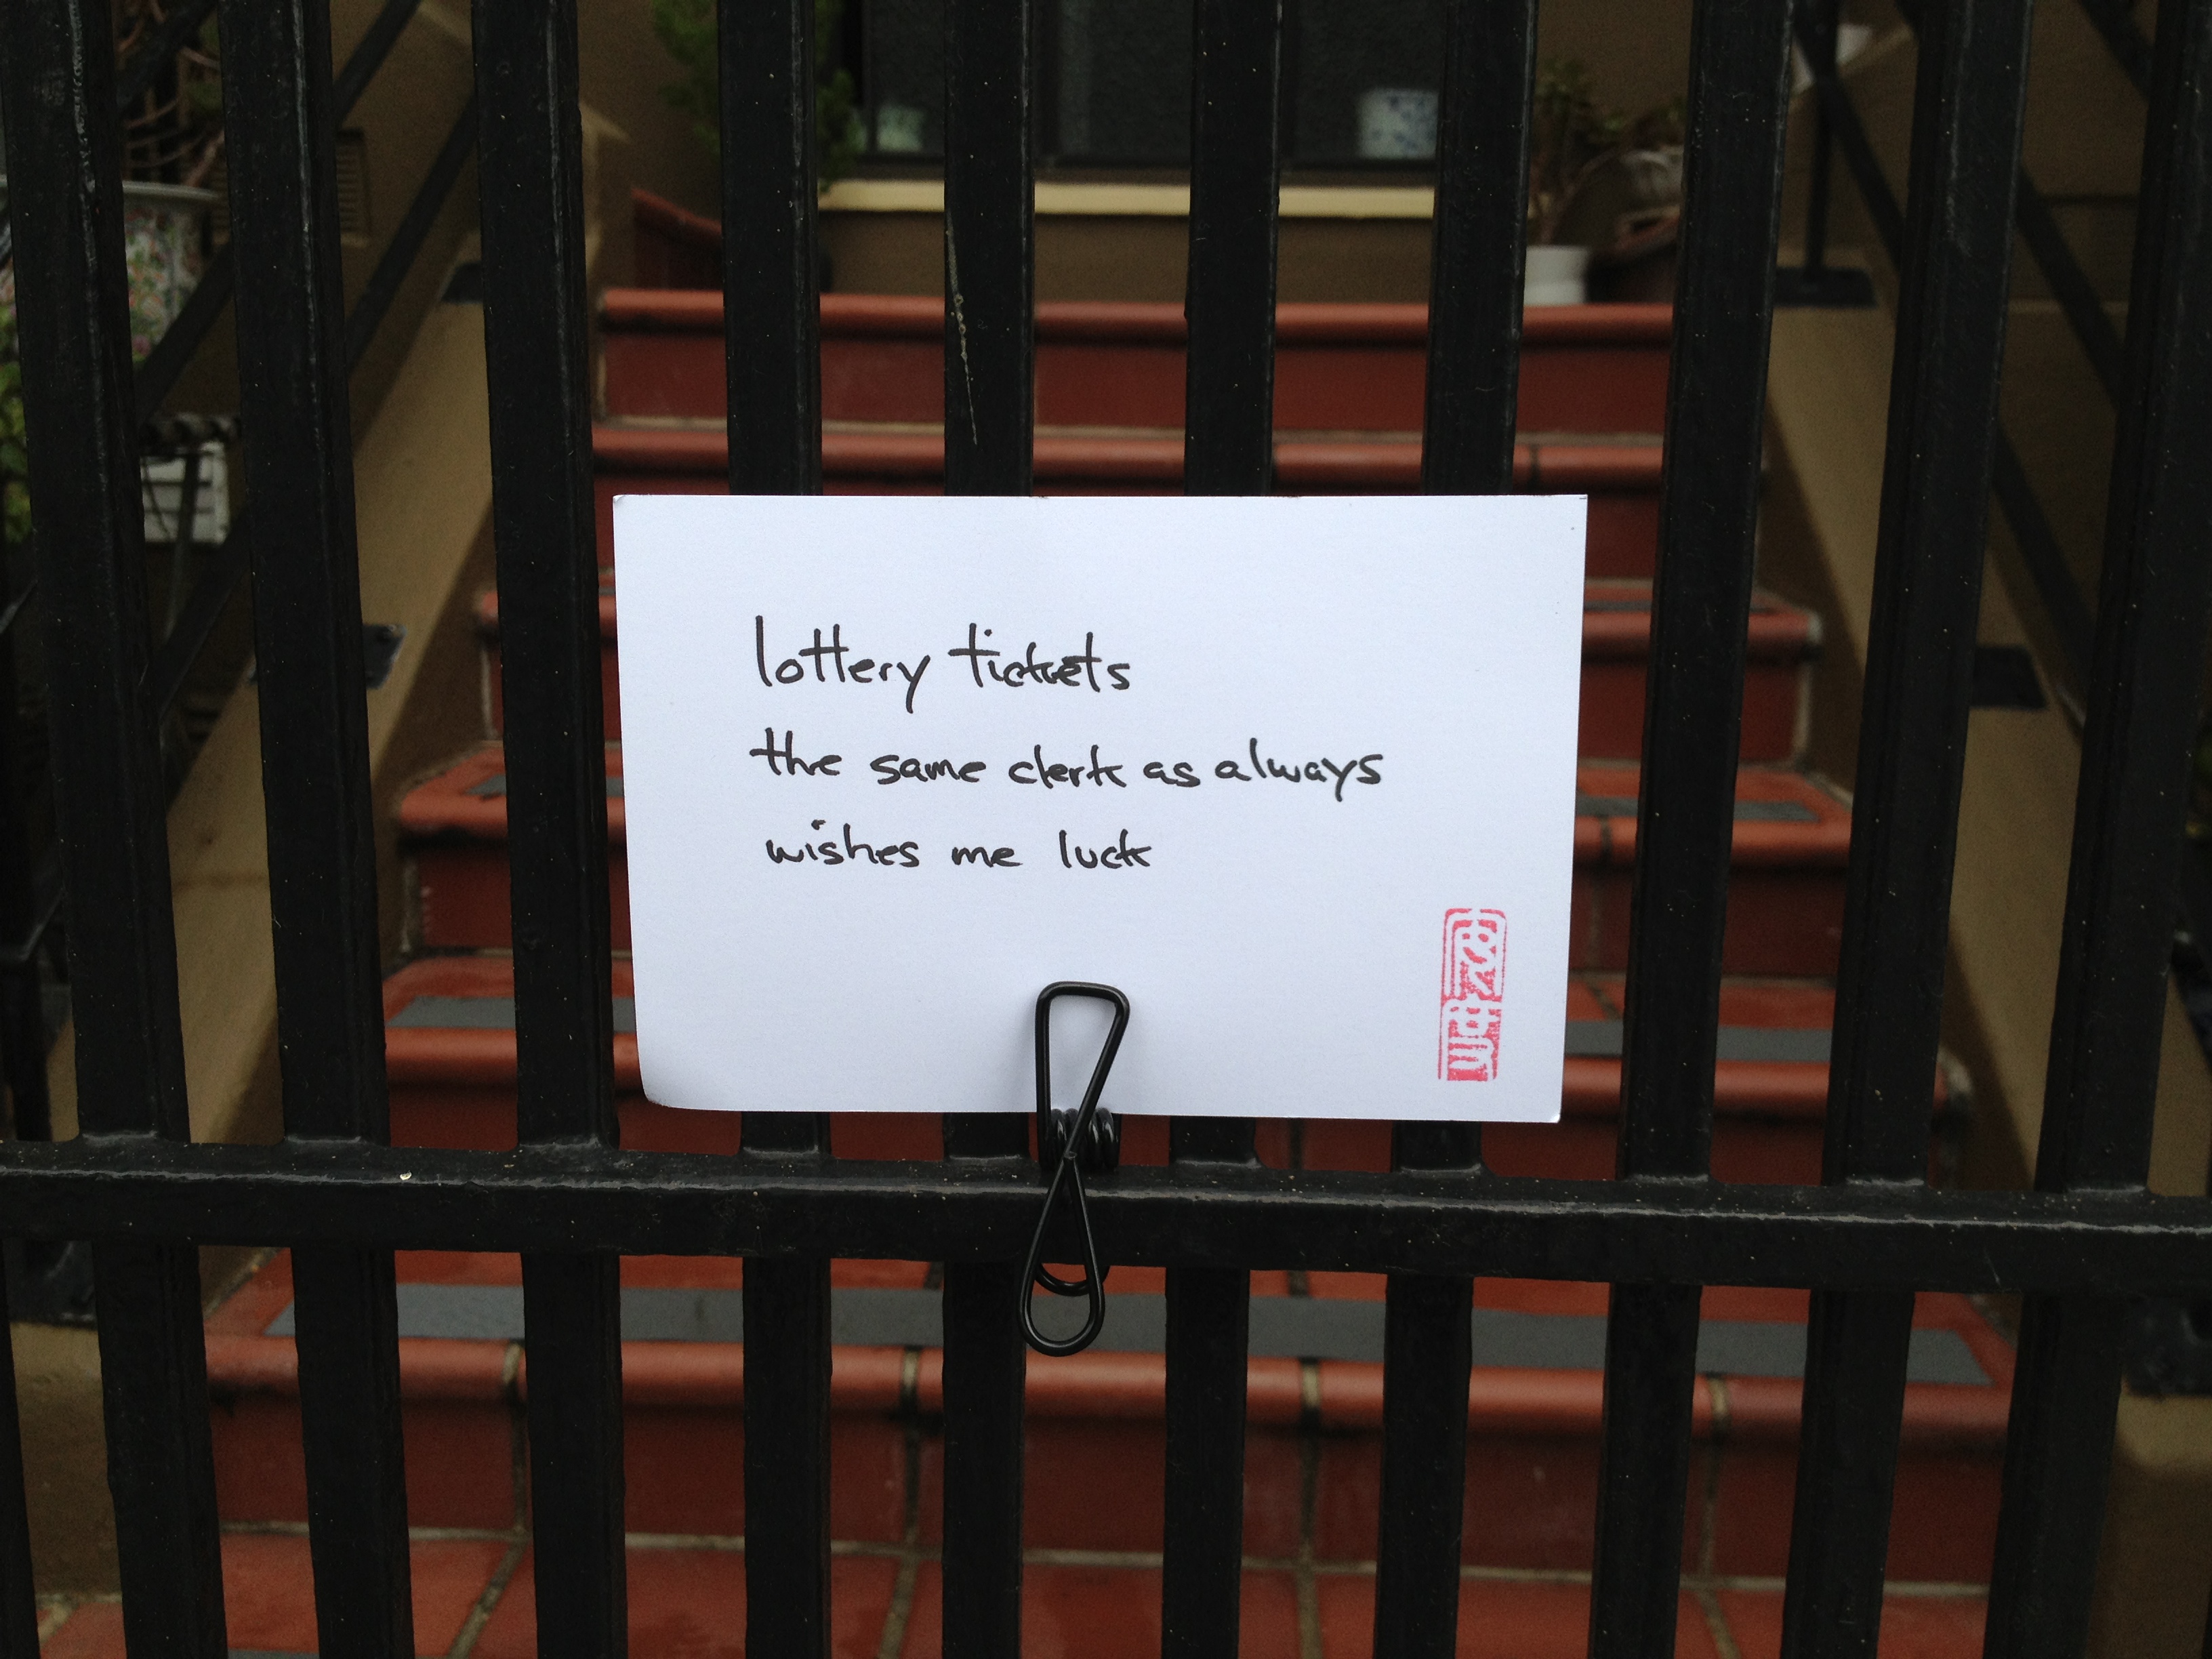 lottery tickets
the same clerk as always
wishes me luck